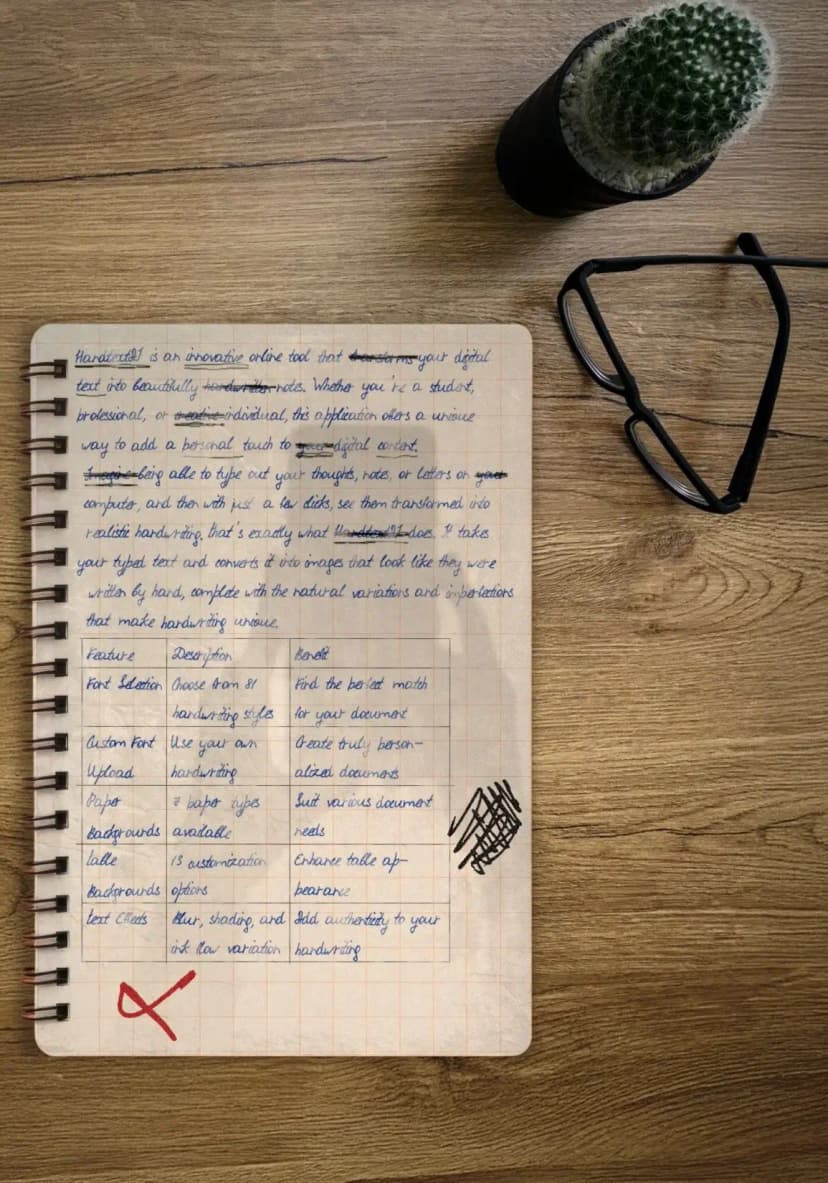 Handtext21 is an innovative online tool that transforms your digital
text into beautifully handwritten notes. Whether you're a student,
professional, or creative individual, this application offers a unique
way to add a personal touch to your digital content.
Imagine being able to type out your thoughts, notes, or letters on your
computer, and then with just a few clicks, see them transformed into
realistic handwriting, that's exactly what does. It takes
your typed text and converts it into images that look like they were
written by hand, complete with the natural variations and imperfections
that make handwriting unique.
Feature Description Benefit
Font Selection Choose from 81 Find the perfect match
handwriting styles for your document
Custom Font Use your own Create truly person-
Upload handwriting alized documents
Paper 7 paper types Suit various document
Backgrounds available needs
Table 13 customization Enhance table ap-
Backgrounds options pearance
Text Effects Blur, shading, and Add authenticity to your
ink flow variation handwriting